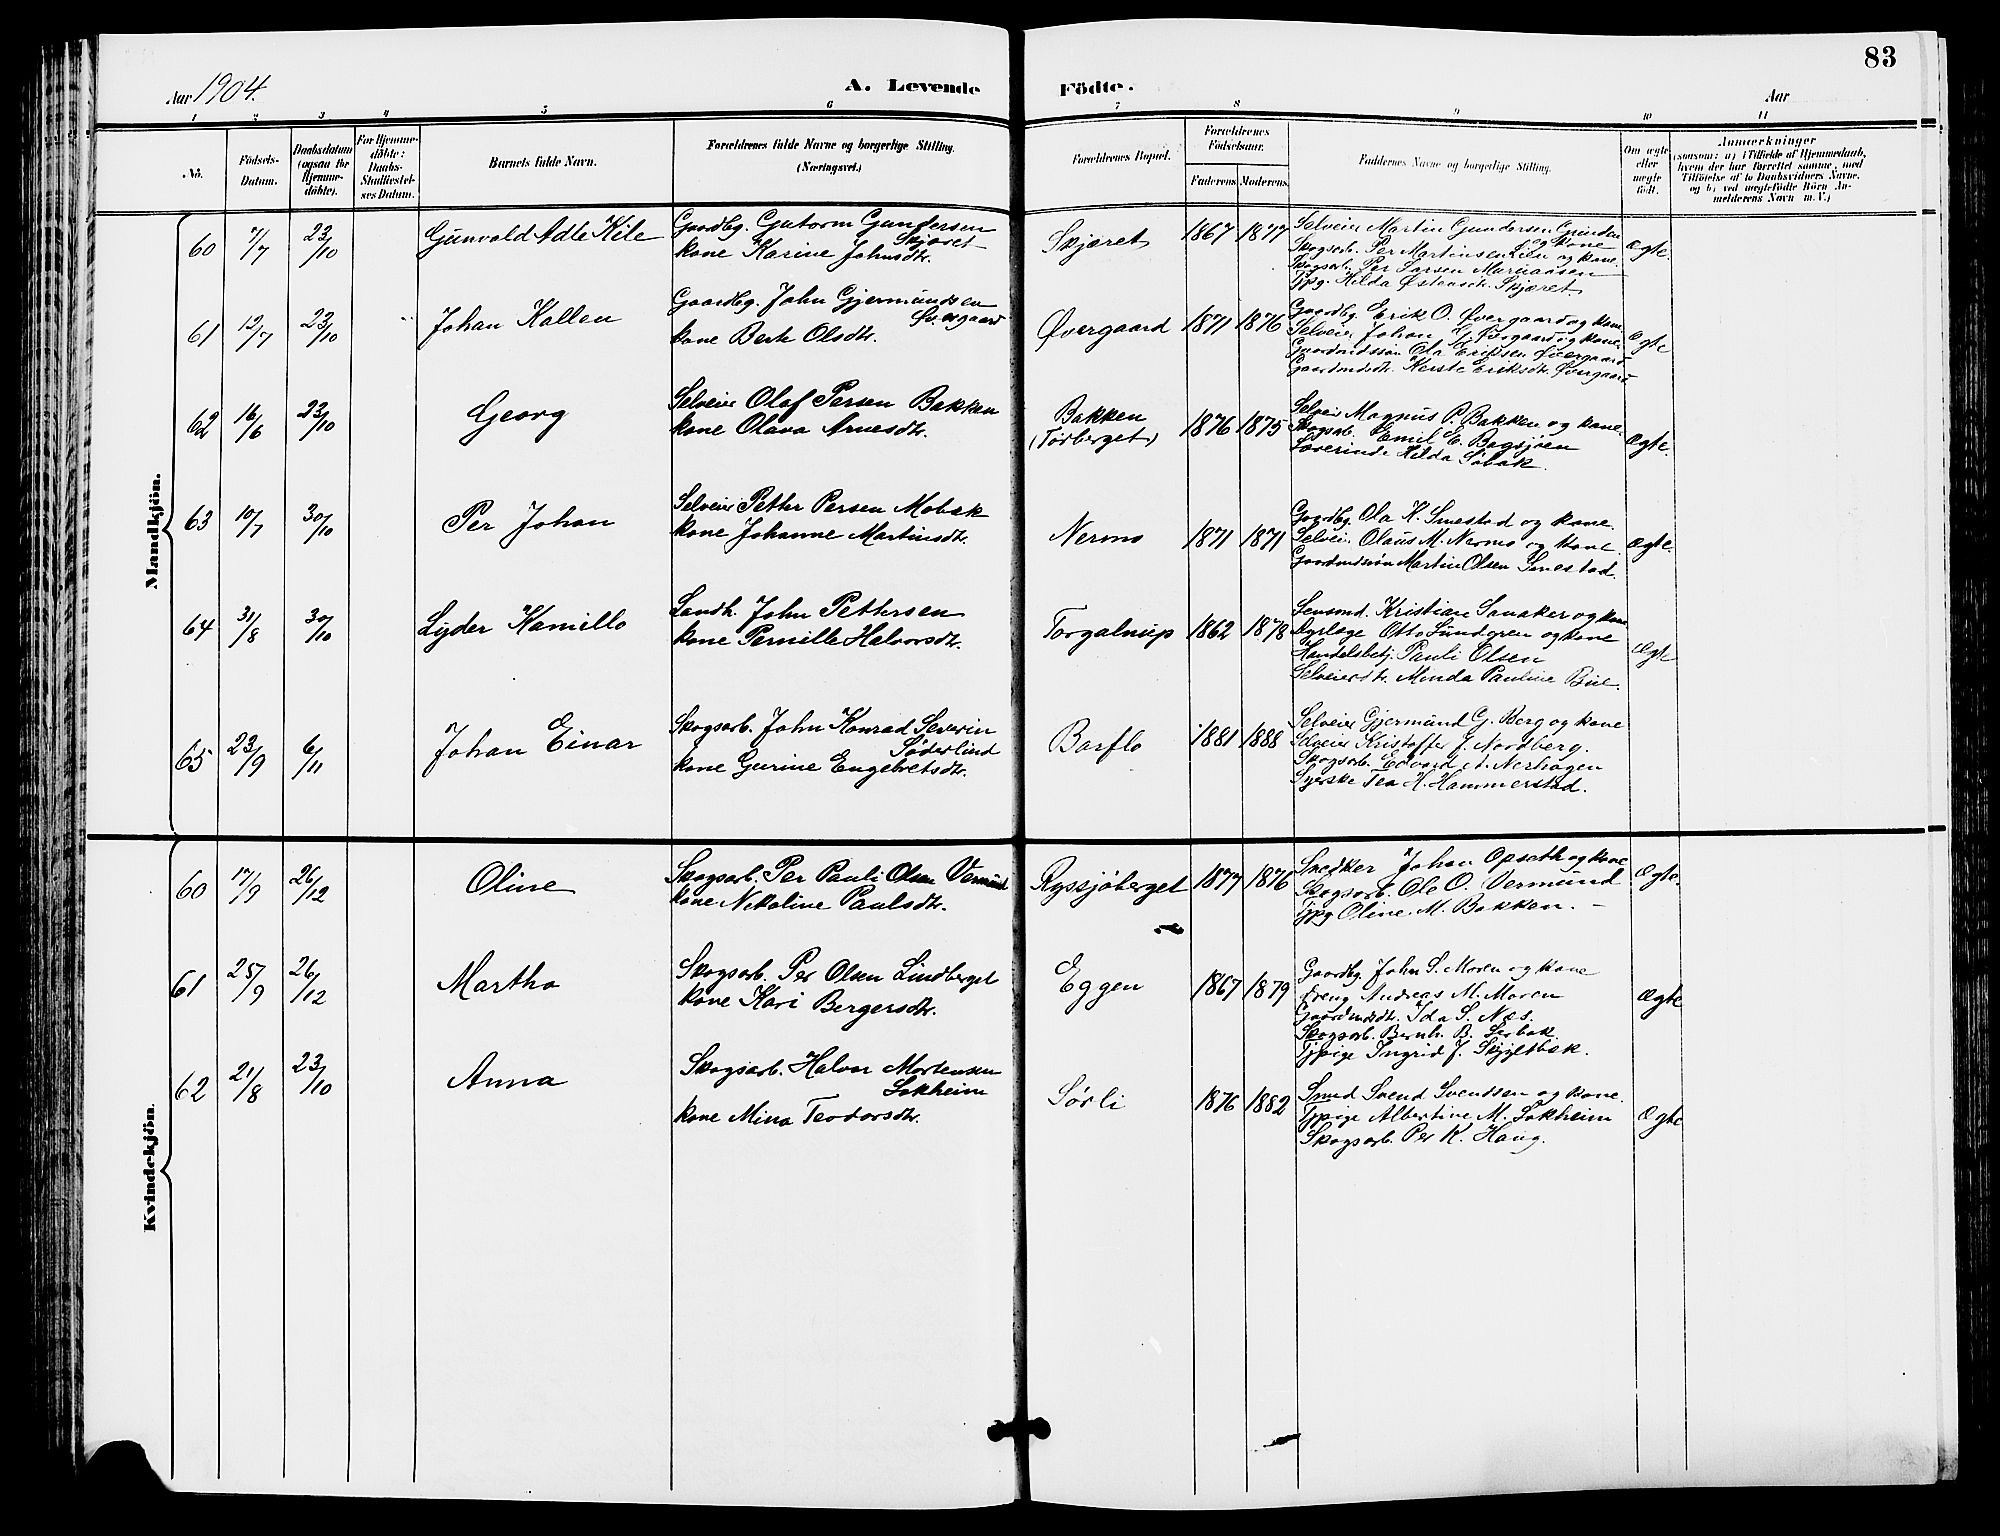 83
Aar 1904.
A. Levende Födte.
Aar
1 2 3 4 5 6 7 8 9 10 11
No.
Födsels-
Datum.
Daabsdatum
(ogsaa for
Hjemme-
döbte).
For Hjemme-
döbte:
Daabs-
Stadfæstel-
ses Datum.
Barnets fulde Navn.
Forældrenes fulde Navne og borgerlige Stilling.
(Næringsvei.)
Forældrenes Bopæl.
Forældrenes
Födselsaar.
Faderens. Moderens.
Faddernes Navne og borgerlige Stilling.
Om ægte
eller
uægte
født.
Anmærkninger
(saasom: a) i Tilfælde af Hjemmedaab,
hvem der har forrettet samme, med
Tilföielse af to Daabsvidners Navne,
og b) ved uægtefödte Börn An-
melderens Navn m.V.)
Mandkjön.
60 7/7 23/10 Gunvald Adle Kile
Gaardbg. Gutorm Gundersen
Skjæret
kone Karine Johnsdtr.
Skjæret 1867 1877
Selveier Martin Gundersen Grinden
og kone
Skogsarb. Per Martinsen Lien og kone.
Skogsarb. Per Larsen
Tjpg. Hilda Østensdr. Skjæret
Ægte.
61 12/7 23/10 Johan Kallen
Gaardbg. John Gjermundsen
Øvergaard
kone Berte Olsdtr.
Øvergaard 1871 1876
Gaardbg. Erik O. Øvergaard og kone
Selveier Johan Øvergaard og kone.
Gaardmdssøn Ola Eriksen Øvergaard
Gaardmdsdtr. Kerste Eriksdtr. Øvergaard
Ægte
62 16/6 23/10 Georg
Selveier Olaf Persen Bakken
kone Olava Arnesdtr.
Bakken
(Törberget)
1876 1875
Selveier Magnus P. Bakken og kone.
Skogsarb. Emil E. Bagsjøen
Lærerinde Hilda Søbak.
Ægte.
63 10/7 30/10 Per Johan
Selveier Petter Persen Mobak
kone Johanne Martinsdtr.
Nermo 1871 1871
Gaardbg. Ola H. Smestad og kone.
Selveier Olaus M. Nermo og kone
Gaardmdssøn Martin Olsen Smestad.
Ægte.
64 31/8 30/10 Lyder Kamillo
Landh. John Pettersen
kone Pernille Halvorsdtr.
Torgalnup 1862 1878
Lensmd. Kristian Sanaker og kone
Dyrlæge Otto Lundgren og kone
Handelsbetj. Pauli Olsen
Selveierdtr. Minda Pauline Bue.
Ægte
65 23/9 6/11 Johan Einar
Skogsarb. John Konrad Severin
Söderlind
kone Gurine Engebretsdtr.
Barflo 1881 1888
Selveier Gjermund G. Berg og kone
Selveier Kristoffer J. Nordberg.
Skogsarb. Edvard A. Nerhagen
Syerske Tea H. Hammerstad.
Kvindekjön.
60 17/9 26/12 Oline
Skogsarb. Per Pauli Olsen Vermund
kone Nikoline Paulsdtr.
Ryssjöberget 1877 1876
Snedker Johan Opseth og kone
Skogsarb. Ole O. Vermund
Tjpg Oline M. Bakken. –
Ægte.
61 25/9 26/12 Martha
Skogsarb. Per Olsen Lindberget
kone Kari Bergersdtr.
Eggen 1867 1879
Gaardbg. John S. Moren og kone
Dreng Andreas M. Moren
Gaardmdsdtr. Ida S. Næs.
Skogsarb. Bernh. B. Lerbak
Tjpige Ingrid J. Skjyltbæk.
Ægte
62 21/8 23/10 Anna
Skogsarb. Halvor Mortensen
Lokheim
kone Mina Teodorsdtr.
Sørli 1876 1882
Smed Svend Svendsen og kone.
Tjpige Albertine M. Lokheim
Skogsarb. Per K. Haug.
Ægte